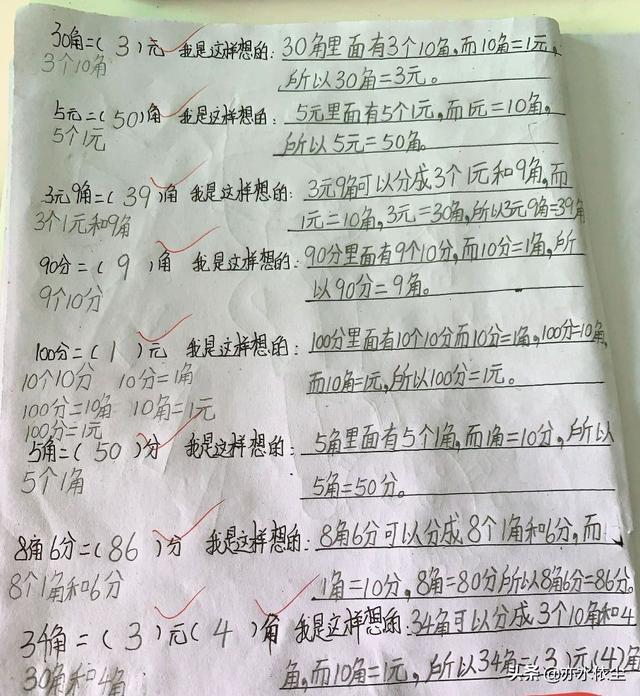 30角=( 3 )元 我是这样想的: 30角里面有3个10角,而10角=1元,
3个10角
所以30角=3元。
5元=( 50 )角 我是这样想的: 5元里面有5个1元,而1元=10角,
5个1元
所以5元=50角。
3元9角=( 39 )角 我是这样想的: 3元9角可以分成3个1元和9角,而
3个1元和9角
1元=10角,3元=30角,所以3元9角=39角
90分=( 9 )角 我是这样想的: 90分里面有9个10分,而10分=1角,所
9个10分
以90分=9角。
100分=( 1 )元 我是这样想的: 100分里面有10个10分而10分=1角,100分=10角,
10个10分 10分=1角
而10角=1元,所以100分=1元。
100分=10角 10角=1元
100分=1元
5角=( 50 )分 我是这样想的: 5角里面有5个1角,而1角=10分,所以
5个1角
5角=50分。
8角6分=( 86 )分 我是这样想的: 8角6分可以分成8个1角和6分,而
8个1角和6分
1角=10分,8角=80分所以8角6分=86分。
34角=( 3 )元( 4 )角 我是这样想的: 34角可以分成3个10角和4
30角和4角
角,而10角=1元,所以34角=(3)元(4)角
头条@亦亦依生